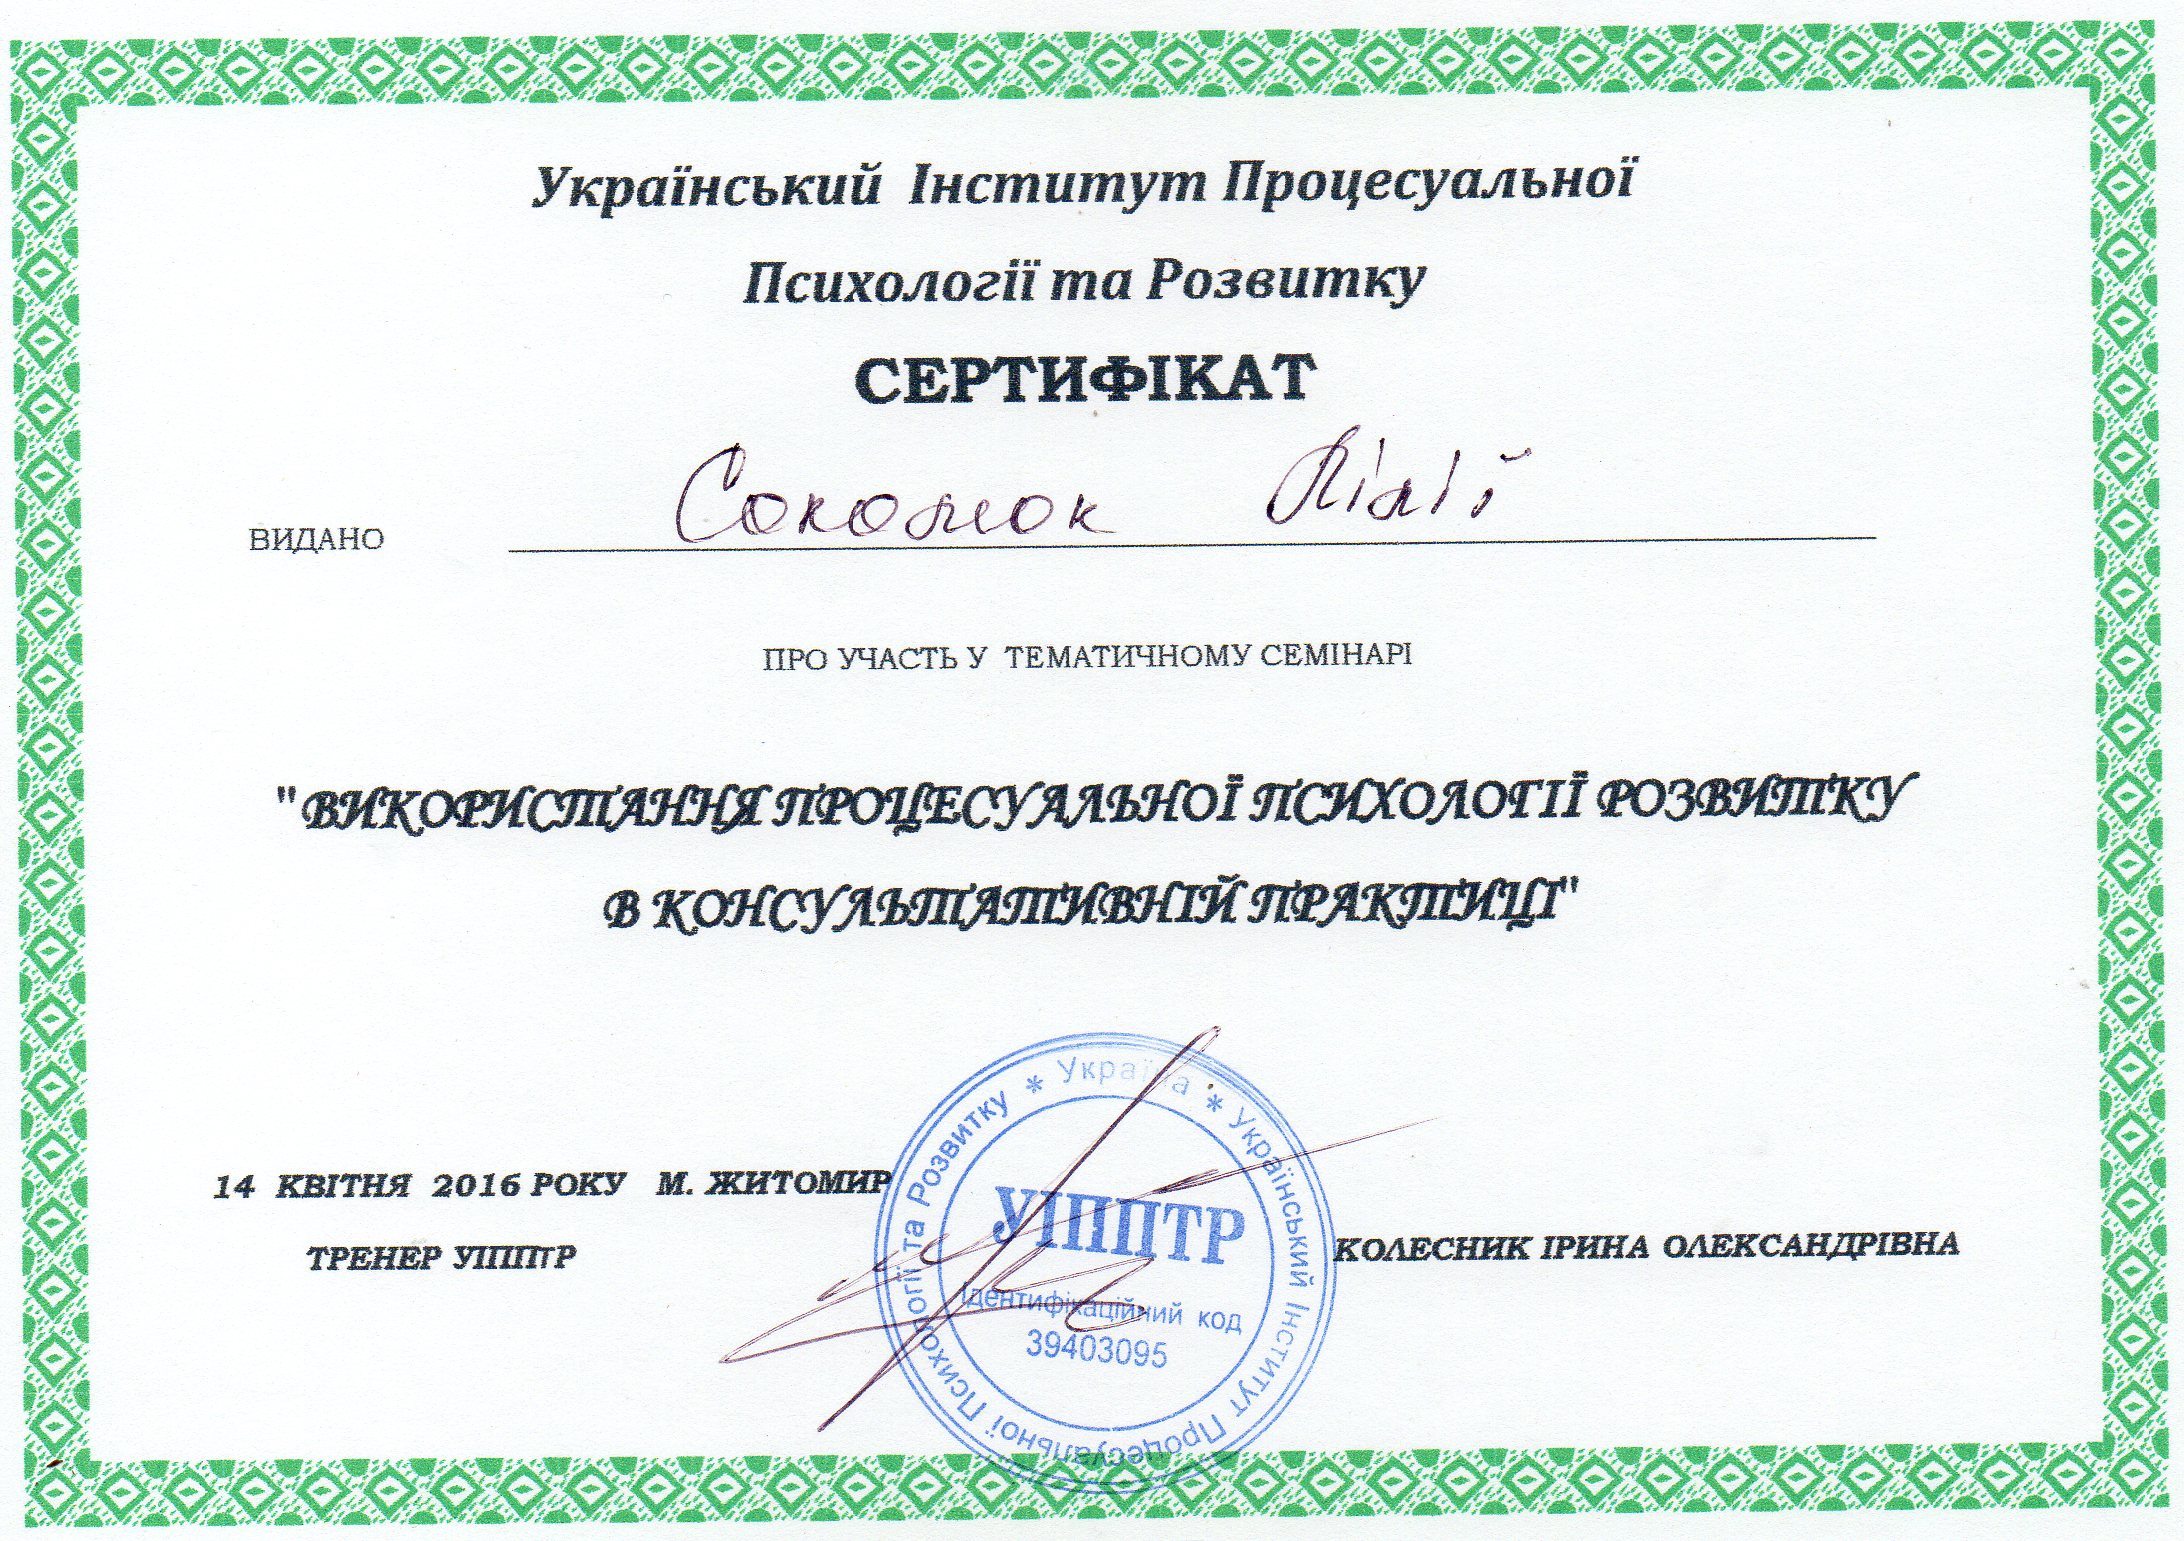 Український Інститут Процесуальної
Психології та Розвитку
СЕРТИФІКАТ
ВИДАНО Соколюк Лілії
ПРО УЧАСТЬ У ТЕМАТИЧНОМУ СЕМІНАРІ
"ВИКОРИСТАННЯ ПРОЦЕСУАЛЬНОЇ ПСИХОЛОГІЇ РОЗВИТКУ
В КОНСУЛЬТАТИВНІЙ ПРАКТИЦІ"
14 КВІТНЯ 2016 РОКУ М. ЖИТОМИР
ТРЕНЕР УІППтР
КОЛЕСНИК ІРИНА ОЛЕКСАНДРІВНА
* Україна * Український Інститут Процесуальної Психології та Розвитку
УІППТР
Ідентифікаційний код
39403095